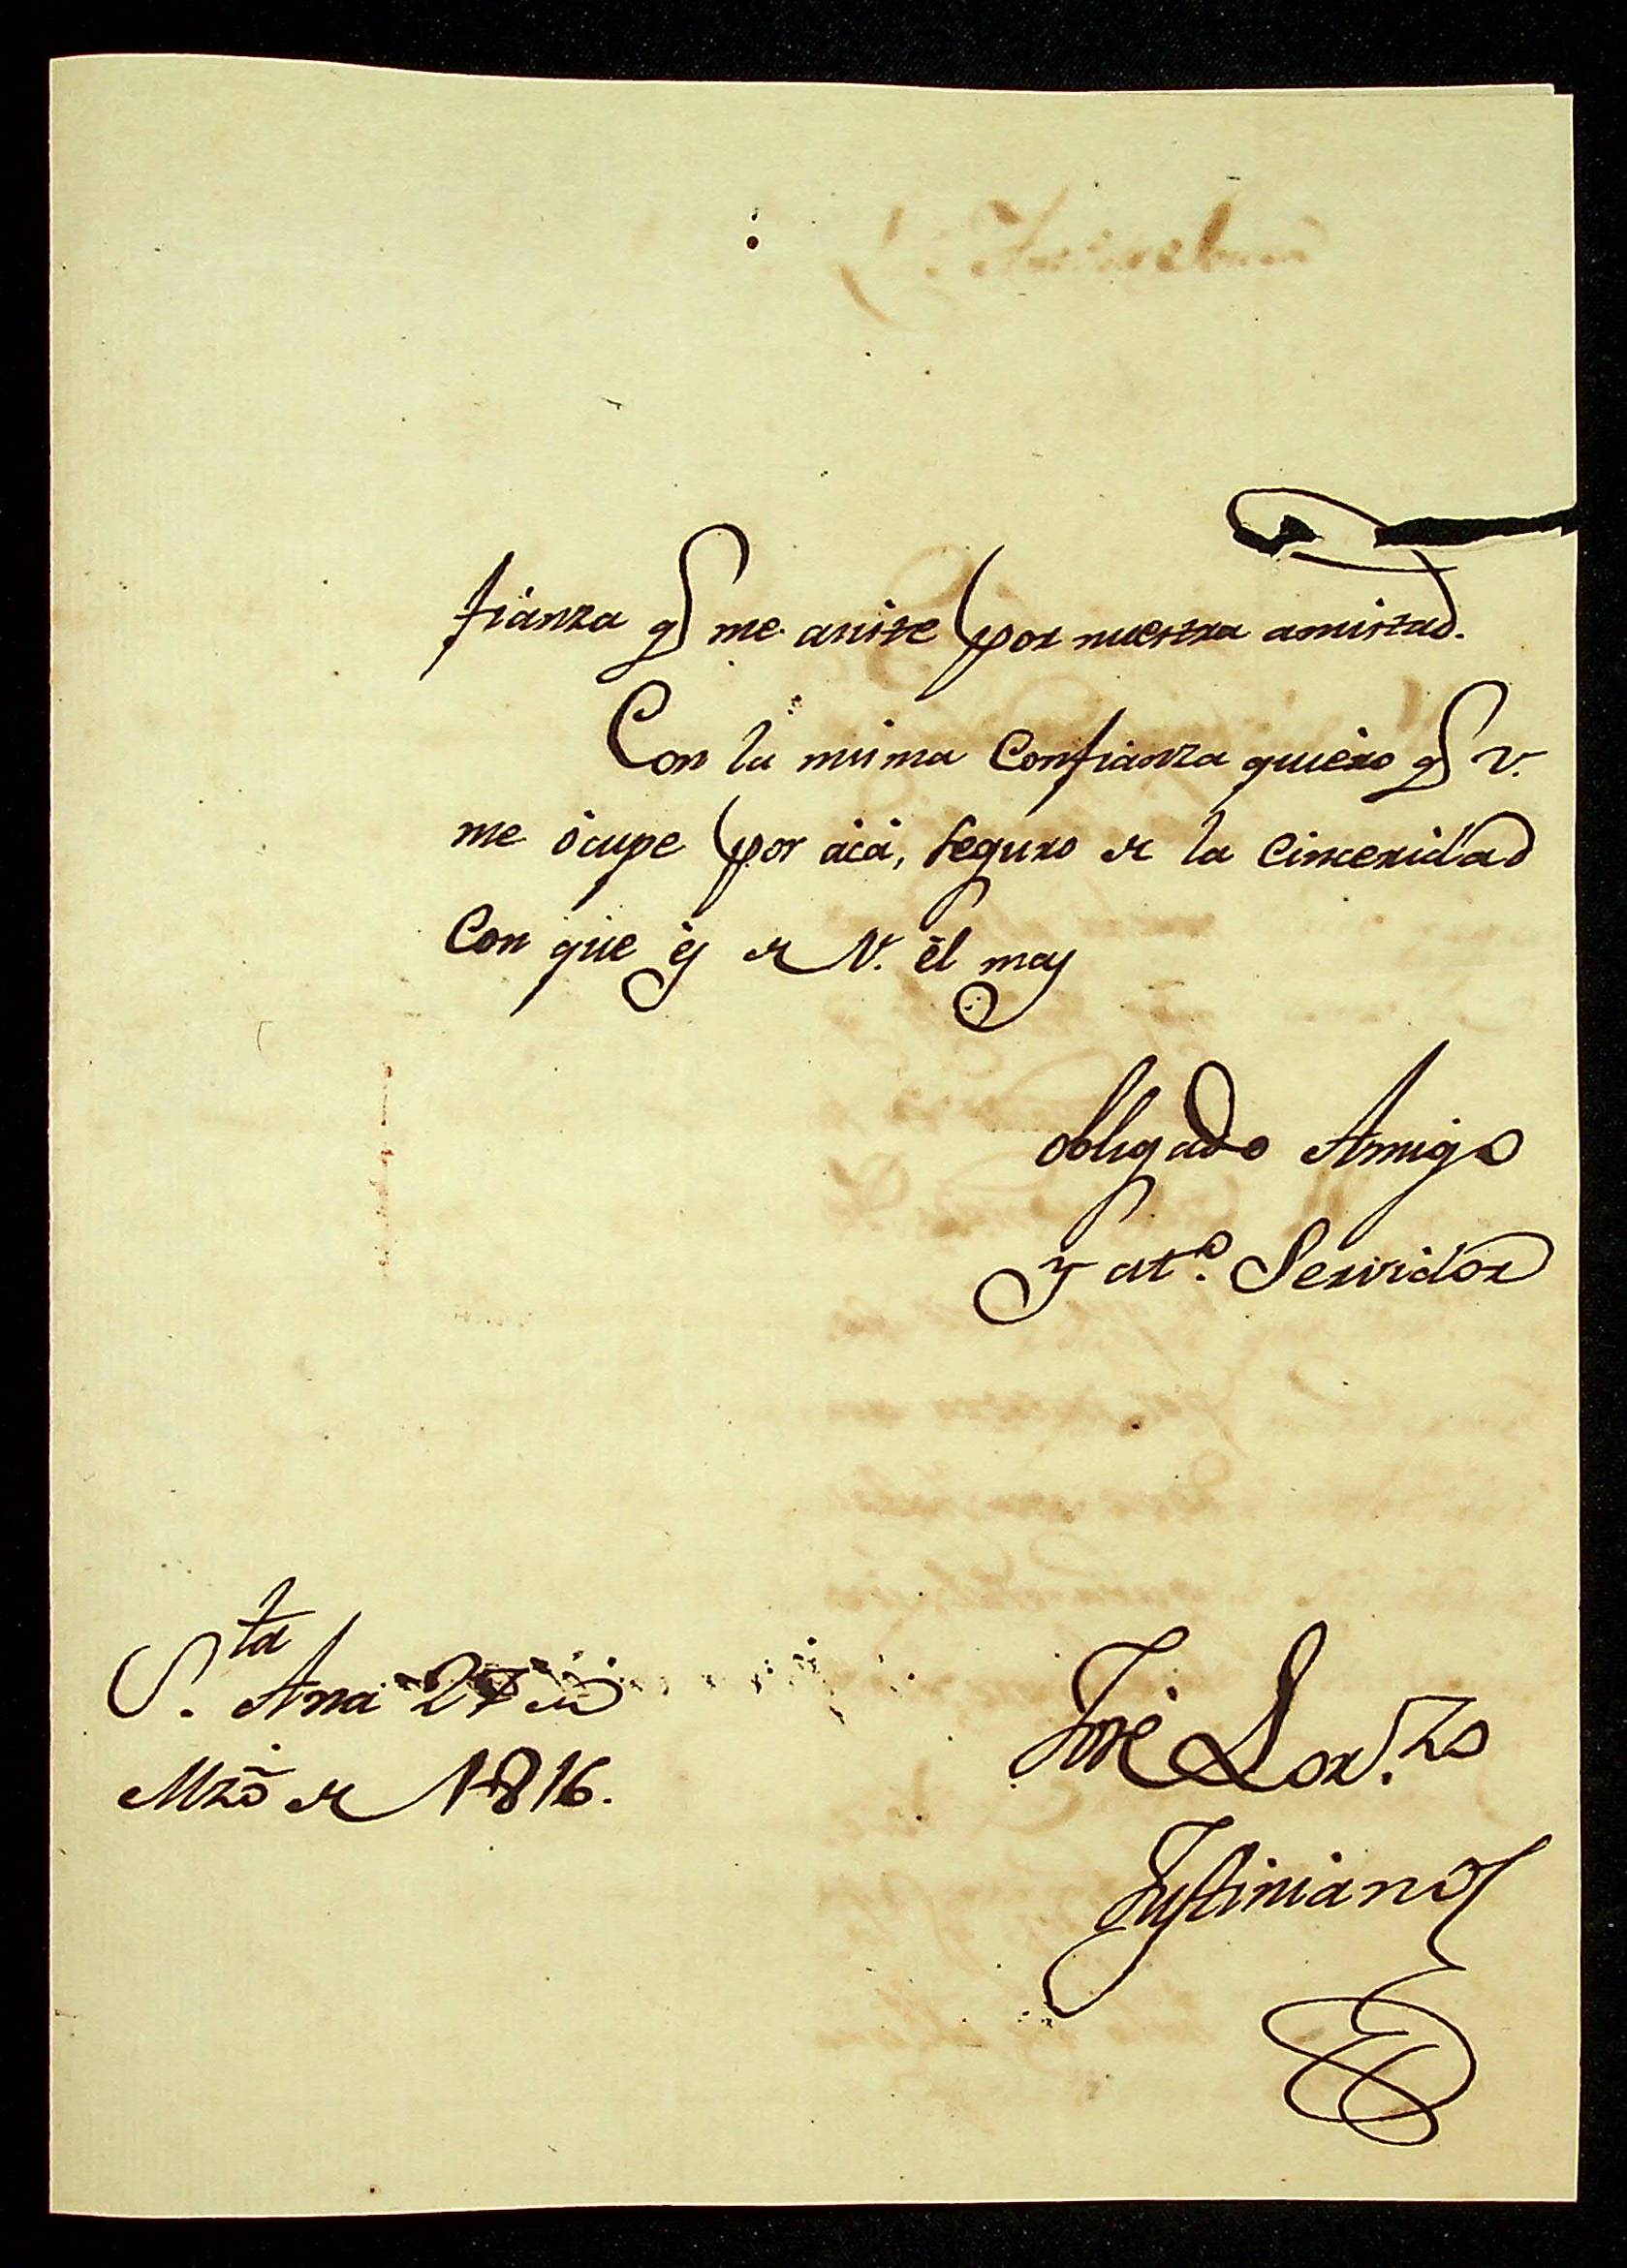 fianza q.e me asiste por nuestra amistad.
Con la misma confianza quiero q.e v.
me ocupe por acá, seguro de la cinceridad
con que es de V. el mas
obligado Amigo
y at.o Servidor
S.ta Ana 27 de
Mzo de 1816.
José Lor.zo
Justiniano